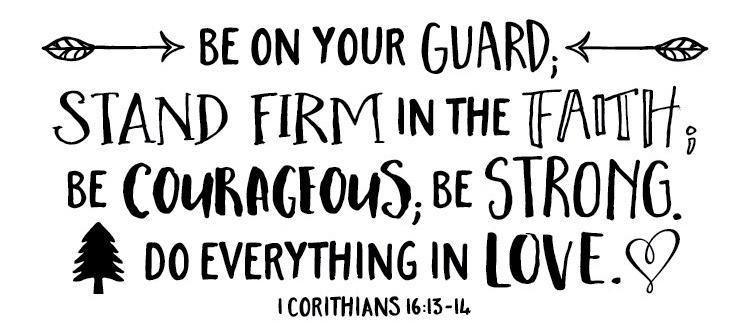 BE ON YOUR GUARD;
STAND FIRM IN THE FAITH;
BE COURAGEOUS; BE STRONG.
DO EVERYTHING IN LOVE.
1 CORITHIANS 16:13-14